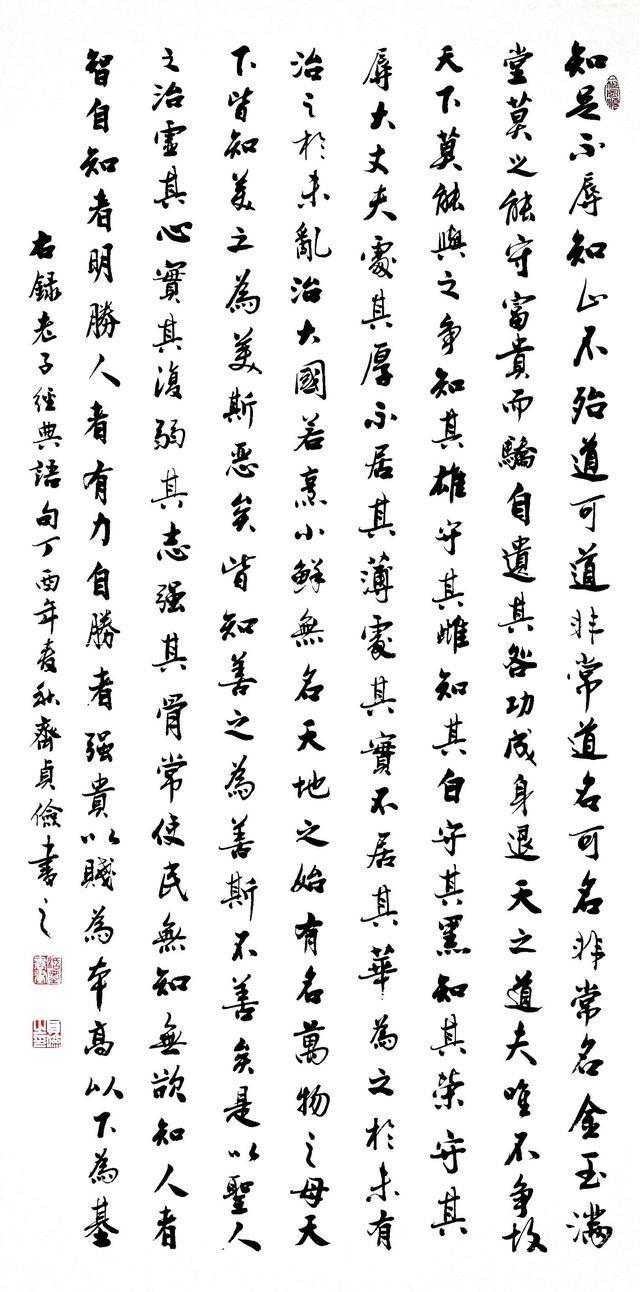 知足不辱知止不殆道可道非常道名可名非常名金玉满
堂莫之能守富貴而驕自遺其咎功成身退天之道夫唯不争故
天下莫能與之争知其雄守其雌知其白守其黑知其榮守其
辱大丈夫處其厚不居其薄處其實不居其華為之於未有
治之於未亂治大國若烹小鮮無名天地之始有名萬物之母天
下皆知美之為美斯恶矣皆知善之為善斯不善矣是以聖人
之治虛其心實其復弱其志强其骨常使民無知無欲知人者
智自知者明勝人者有力自勝者强貴以賤為本高以下為基
右録老子經典語句丁酉年麦秋齊貞儉書之